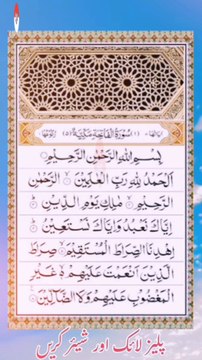 اٰيَاتُهَا ٧ (١) سُوْرَةُ الْفَاتِحَةِ مَكِّيَّةٌ (٥) رُكُوْعُهَا ١
بِسْمِ اللّٰهِ الرَّحْمٰنِ الرَّحِيْمِ
اَلْحَمْدُ لِلّٰهِ رَبِّ الْعٰلَمِيْنَ ۙ الرَّحْمٰنِ
الرَّحِيْمِ ۙ مٰلِكِ يَوْمِ الدِّيْنِ ؕ
اِيَّاكَ نَعْبُدُ وَاِيَّاكَ نَسْتَعِيْنُ ؕ
اِهْدِنَا الصِّرَاطَ الْمُسْتَقِيْمَ ۙ صِرَاطَ
الَّذِيْنَ اَنْعَمْتَ عَلَيْهِمْ ۙ غَيْرِ
الْمَغْضُوْبِ عَلَيْهِمْ وَلَا الضَّآلِّيْنَ
پلیز لائک اور شیئر کریں